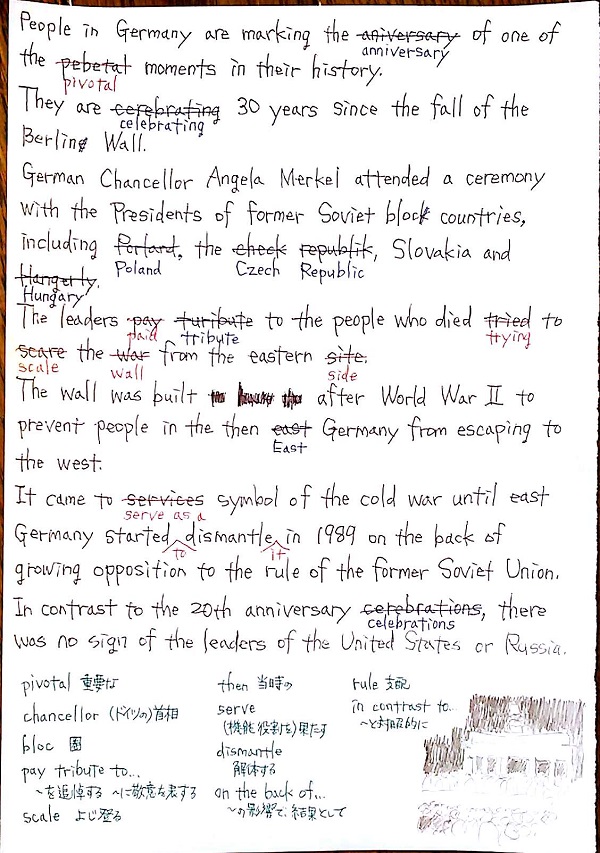 People in Germany are marking the aniversary of one of
anniversary
the pebetal moments in their history.
pivotal
They are cerebrating 30 years since the fall of the
celebrating
Berling Wall.
German Chancellor Angela Merkel attended a ceremony
with the Presidents of former Soviet block countries,
including Porland, the check republik, Slovakia and
Poland Czech Republic
Hangerly.
Hungary
The leaders pay turibute to the people who died tried to
paid tribute trying
scare the war from the eastern site.
scale wall side
The wall was built after World War II to
prevent people in the then east Germany from escaping to
East
the west.
It came to services symbol of the cold war until east
serve as a
Germany started dismantle in 1989 on the back of
to it
growing opposition to the rule of the former Soviet Union.
In contrast to the 20th anniversary cerebrations, there
celebrations
was no sign of the leaders of the United States or Russia.
pivotal 重要な
chancellor (ドイツの)首相
bloc 圏
pay tribute to...
〜を追悼する 〜に敬意を表する
scale よじ登る
then 当時の
serve
(機能、役割を)果たす
dismantle
解体する
on the back of...
〜の影響で、結果として
rule 支配
in contrast to...
〜と対照的に